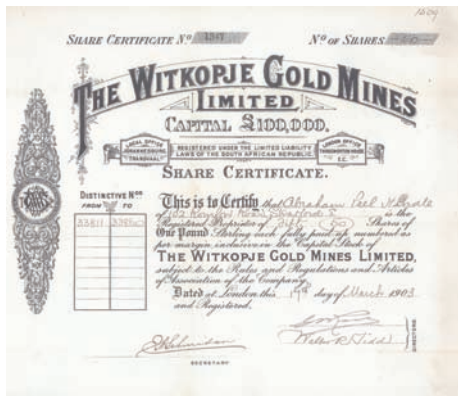 1609
SHARE CERTIFICATE Nº 1347 Nº OF SHARES 50
THE WITKOPJE GOLD MINES
LIMITED,
CAPITAL £100,000.
LOCAL OFFICE
JOHANNESBURG,
TRANSVAAL
REGISTERED UNDER THE LIMITED LIABILITY
LAWS OF THE SOUTH AFRICAN REPUBLIC.
LONDON OFFICE
E.C.
SHARE CERTIFICATE.
DISTINCTIVE NOS
FROM TO
33811 33860
This is to Certify that Abraham Peel
of 102 Road is the
Registered Proprietor of Fifty (50) Shares of
One Pound Sterling each fully paid up numbered as
per margin inclusive in the Capital Stock of
THE WITKOPJE GOLD MINES LIMITED,
subject to the Rules and Regulations and Articles
of Association of the Company.
Dated at London this 17th day of March 1903
and Registered.
SECRETARY
DIRECTORS